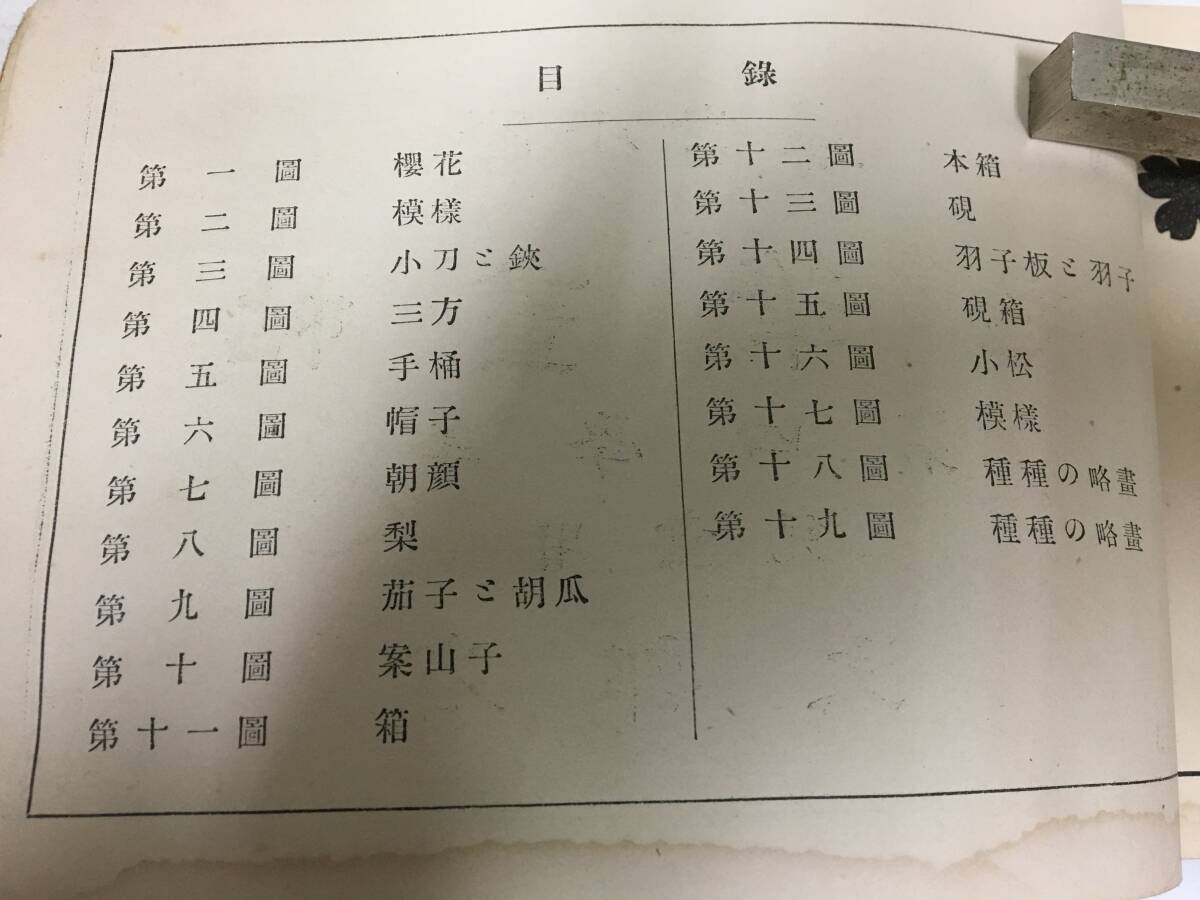 目錄
第一圖 櫻花
第二圖 模樣
第三圖 小刀と鋏
第四圖 三方
第五圖 手桶
第六圖 帽子
第七圖 朝顔
第八圖 梨
第九圖 茄子と胡瓜
第十圖 案山子
第十一圖 箱
第十二圖 本箱
第十三圖 硯
第十四圖 羽子板と羽子
第十五圖 硯箱
第十六圖 小松
第十七圖 模樣
第十八圖 種種の略畫
第十九圖 種種の略畫